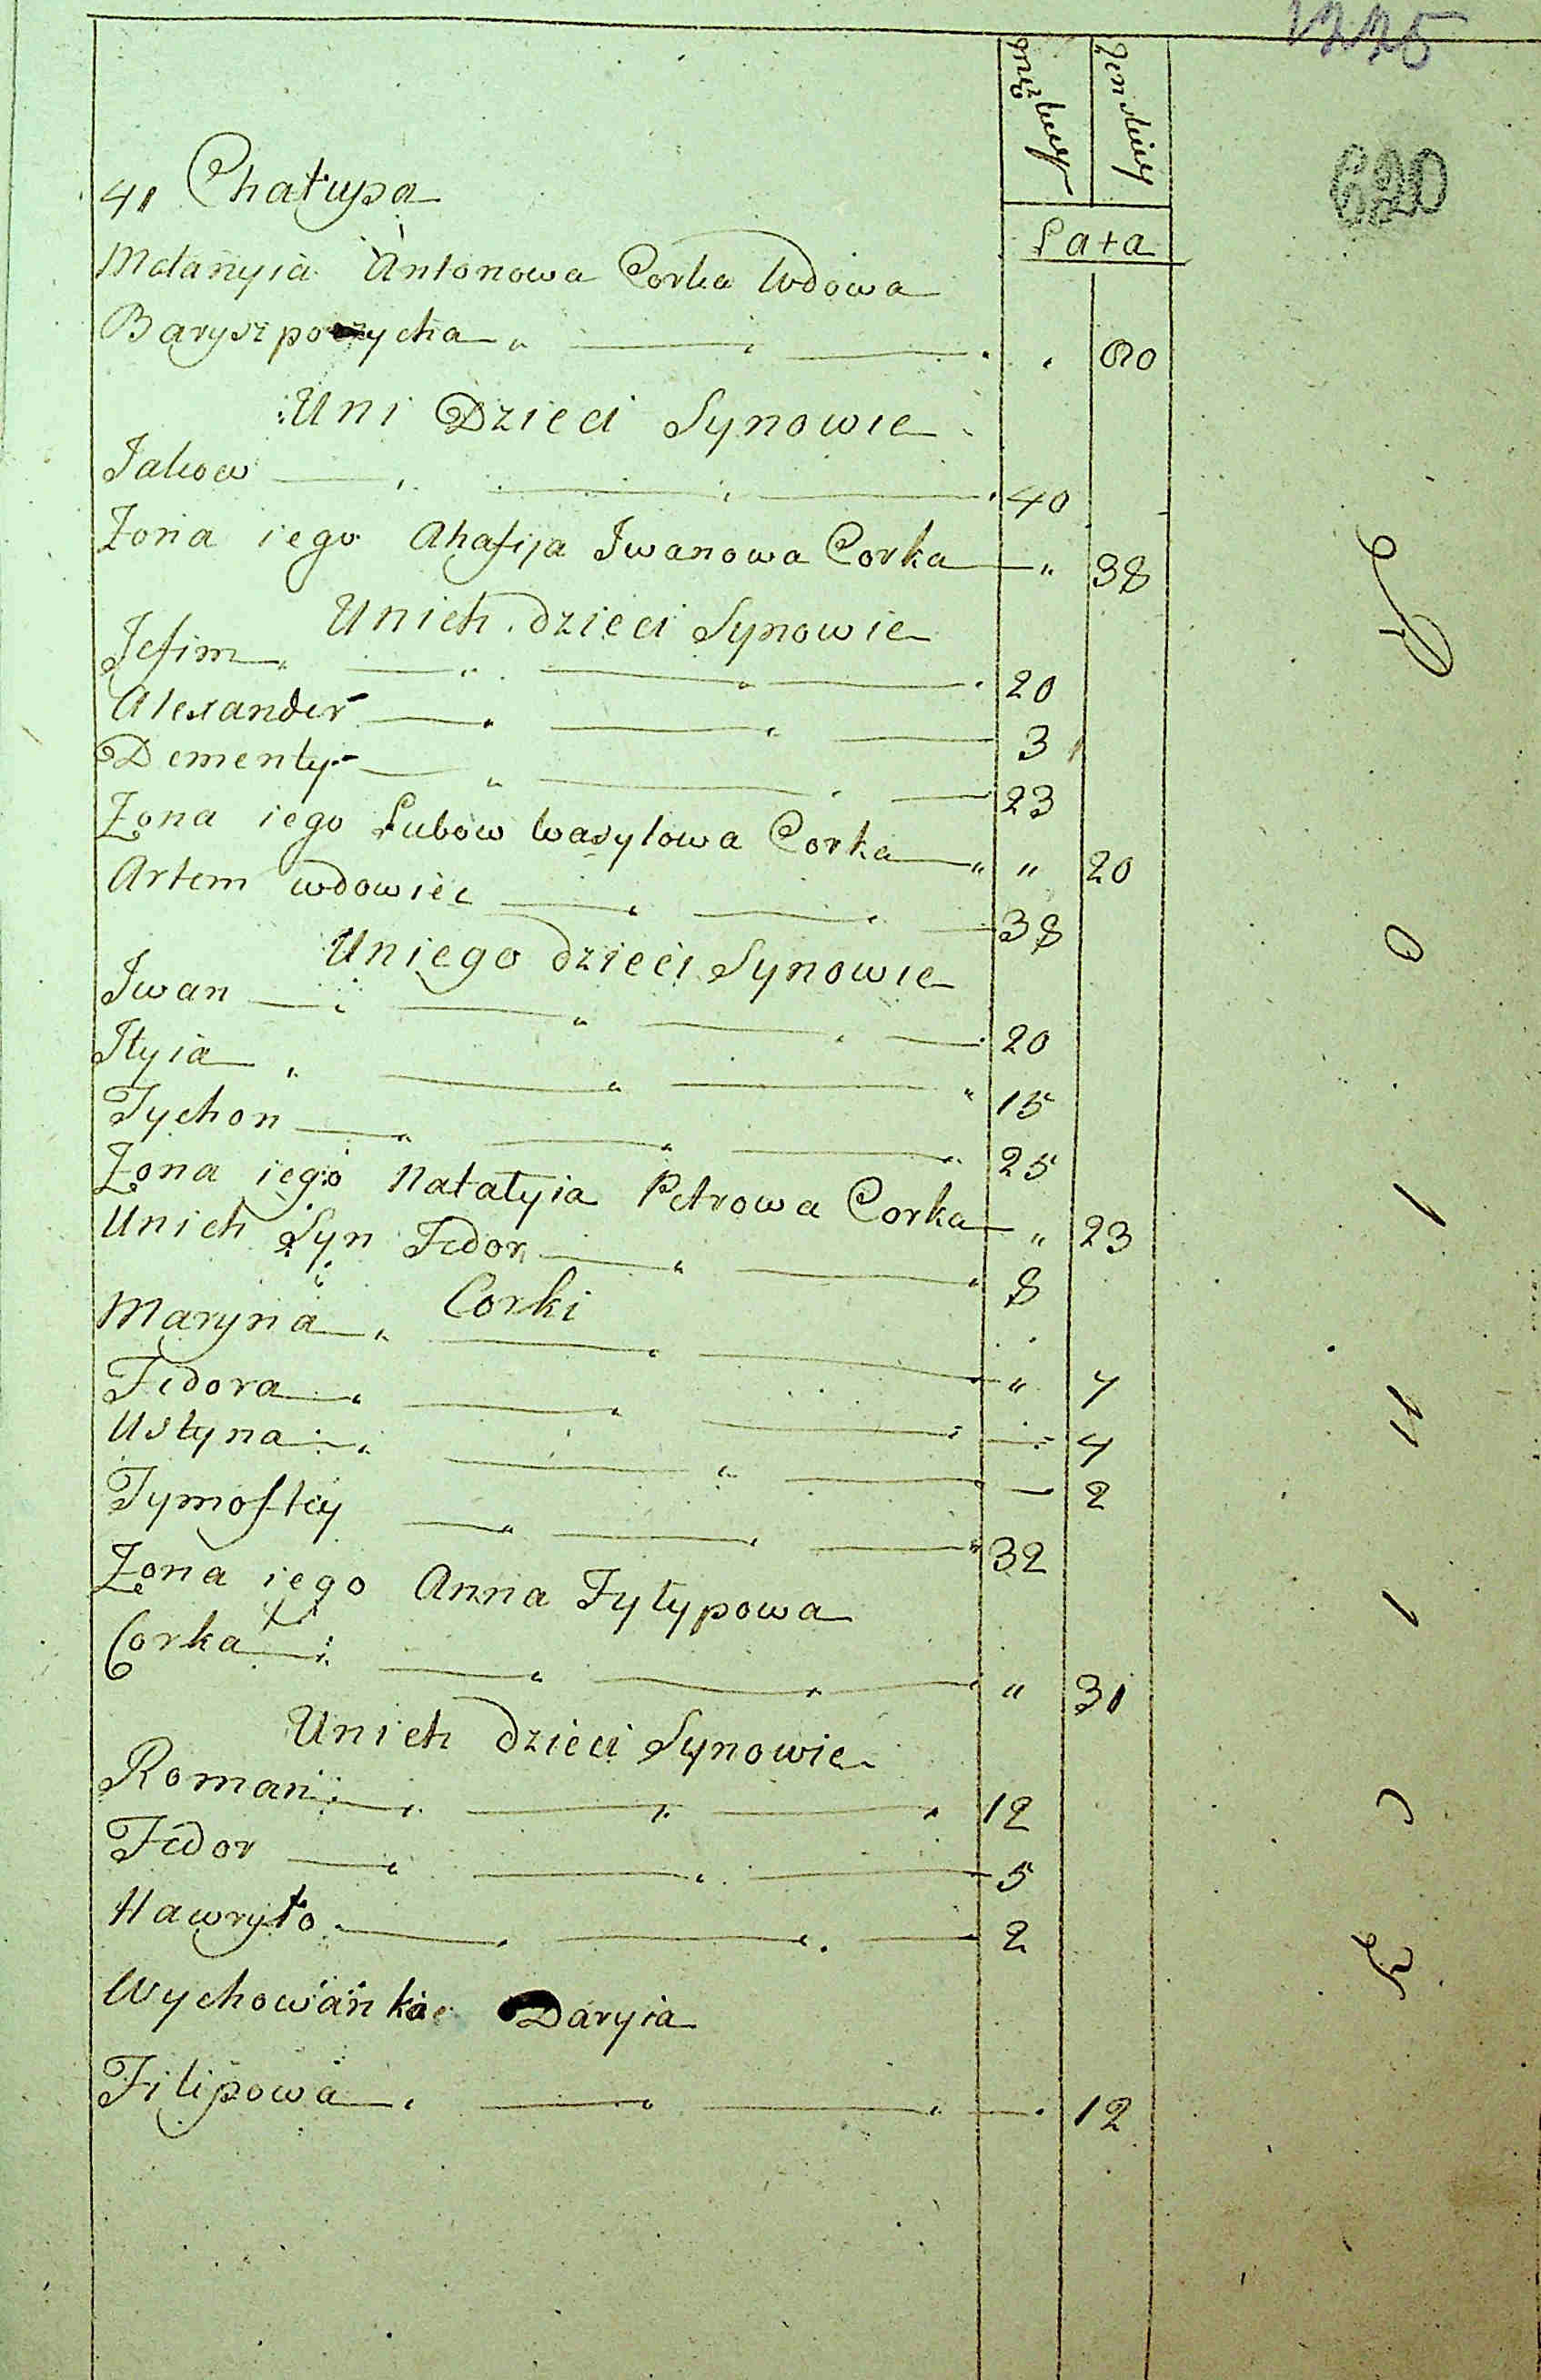 1225
620
mężczyzn żenskiey
Lata
41 Chałupa
Melanyia Antonowa Corka Wdowa
Baryszpolycha 80
U ni Dzieci Synowie
Jakow 40
Zona iego Ahafija Iwanowa Corka " 38
U nich dzieci Synowie
Jefim 20
Alexander 3
Dementy 23
Zona iego Lubow Wasylowa Corka " 20
Artem wdowiec 38
U niego dzieci Synowie
Iwan 20
Ilyia 15
Tychon 25
Zona iego Natalyia Petrowa Corka " 23
U nich Syn Fedor 8
Corki
Maryna " 7
Fedora 4
Ustyna 2
Tymoftey 32
Zona iego Anna Fyłypowa
Corka " 31
U nich dzieci Synowie
Roman 12
Fedor 5
Hawryło 2
Wychowanka Daryia
Filipowa 12